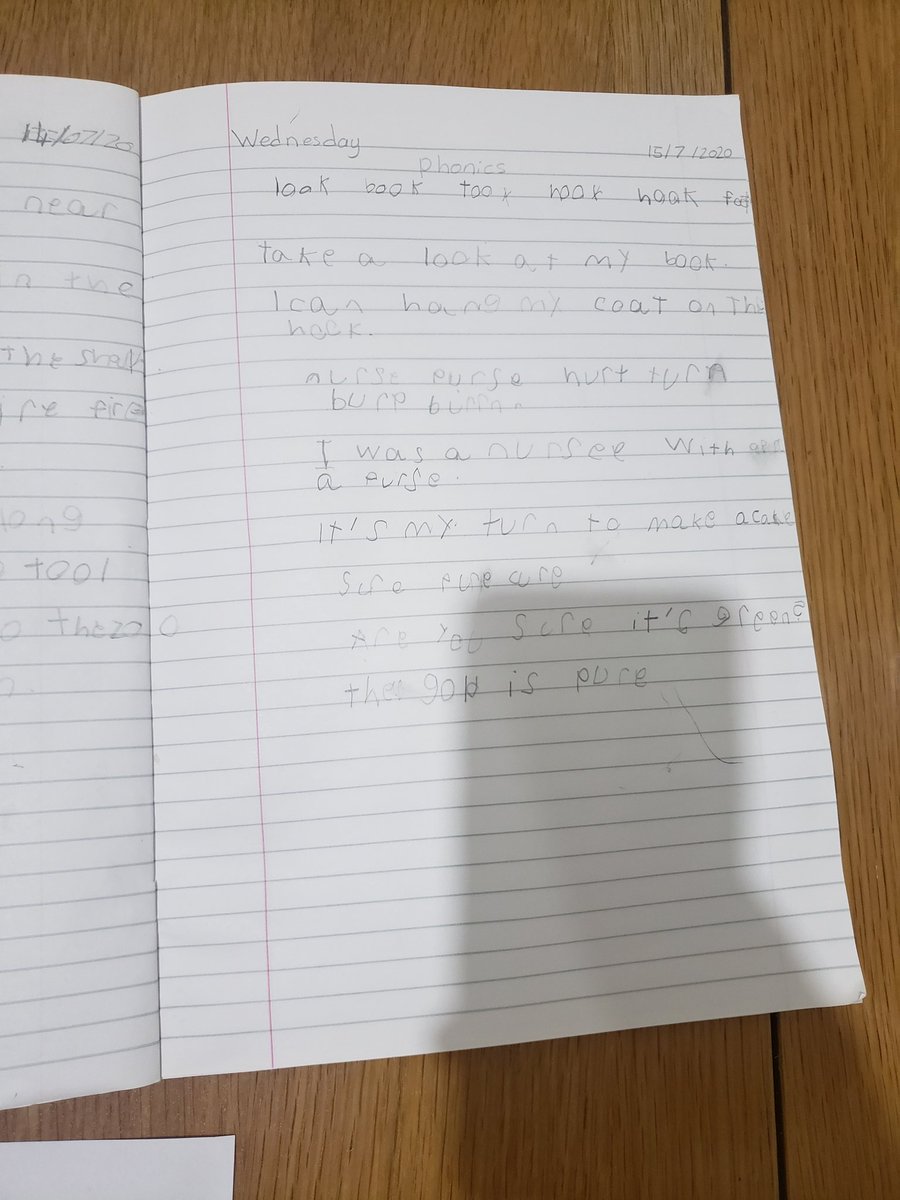 14/07/20
near
n the
the shelf.
re fire
long
tool
o the zoo
Wednesday
15/7/2020
Phonics
look book took nook hook
take a look at my book.
I can hang my coat on the
hook.
nurse purse hurt turn
burp
I was a nursee with
a purse.
It's my turn to make a cake
sure pure cure
Are you sure it's green?
the gold is pure